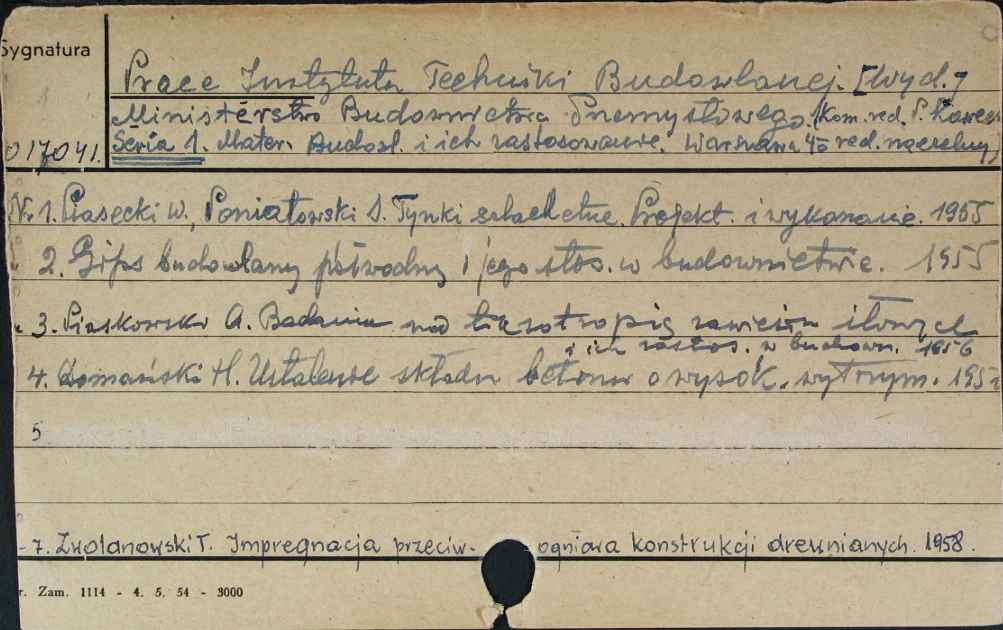 Sygnatura
Prace Instytutu Techniki Budowlanej. [Wyd.]
Ministerstwo Budownictwa Przemysłowego. (Kom. red. P.
017041. Seria 1. Mater. Budowl. i ich zastosowanie. Warszawa red. naczelny
Nr 1. Piasecki W., Poniatowski S. Tynki szlachetne. Projekt. i wykonanie. 1955
2. Gips budowlany półwodny i jego stos. w budownictwie. 1955
3. Piaskowski A. Badania nad tiksotropią zawiesin iłowych
i ich zastos. w budown. 1956
4. Domański H. Ustalenie składu betonu o wysok. wytrzym.
5
- 7. Zwolanowski T. Impregnacja przeciw- ogniowa konstrukcji drewnianych. 1958.
r. Zam. 1114 - 4. 5. 54 - 3000